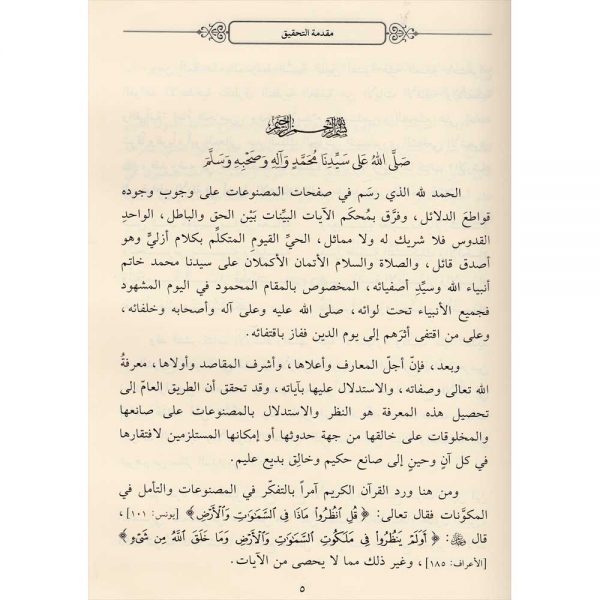 مقدمة التحقيق
بسم الله الرحمن الرحيم
صَلَّى اللهُ عَلَى سَيِّدِنَا مُحَمَّدٍ وَآلِهِ وَصَحْبِهِ وَسَلَّمَ
الحمد لله الذي رسَم في صفحات المصنوعات على وجوب وجوده
قواطعَ الدلائل، وفرَّق بمُحكَم الآيات البيِّنات بَيْن الحق والباطل، الواحدِ
القدوس فلا شريك له ولا مماثل، الحيِّ القيومِ المتكلِّم بكلام أزليٍّ وهو
أصدق قائل، والصلاة والسلام الأتمان الأكملان على سيدنا محمد خاتم
أنبياء الله وسيِّدِ أصفيائه، المخصوص بالمقام المحمود في اليوم المشهود
فجميع الأنبياء تحت لوائه، صلى الله عليه وعلى آله وأصحابه وخلفائه،
وعلى من اقتفى أثرَهم إلى يوم الدين ففاز باقتفائه.
وبعد، فإنّ أجلّ المعارف وأعلاها، وأشرف المقاصد وأولاها، معرفةُ
الله تعالى وصفاته، والاستدلال عليها بآياته، وقد تحقق أن الطريق العامّ إلى
تحصيل هذه المعرفة هو النظر والاستدلال بالمصنوعات على صانعها
والمخلوقات على خالقها من جهة حدوثها أو إمكانها المستلزمين لافتقارها
في كل آنٍ وحينٍ إلى صانع حكيم وخالِقٍ بديع عليم.
ومن هنا ورد القرآن الكريم آمراً بالتفكّر في المصنوعات والتأمل في
المكوَّنات فقال تعالى: ﴿قُلِ انْظُرُوا مَاذَا فِي السَّمَٰوَٰتِ وَالْأَرْضِ﴾ [يونس: ١٠١]،
قال ﷻ: ﴿أَوَلَمْ يَنْظُرُوا فِي مَلَكُوتِ السَّمَٰوَٰتِ وَالْأَرْضِ وَمَا خَلَقَ اللَّهُ مِن شَيْءٍ﴾
[الأعراف: ١٨٥]، وغير ذلك مما لا يحصى من الآيات.
٥